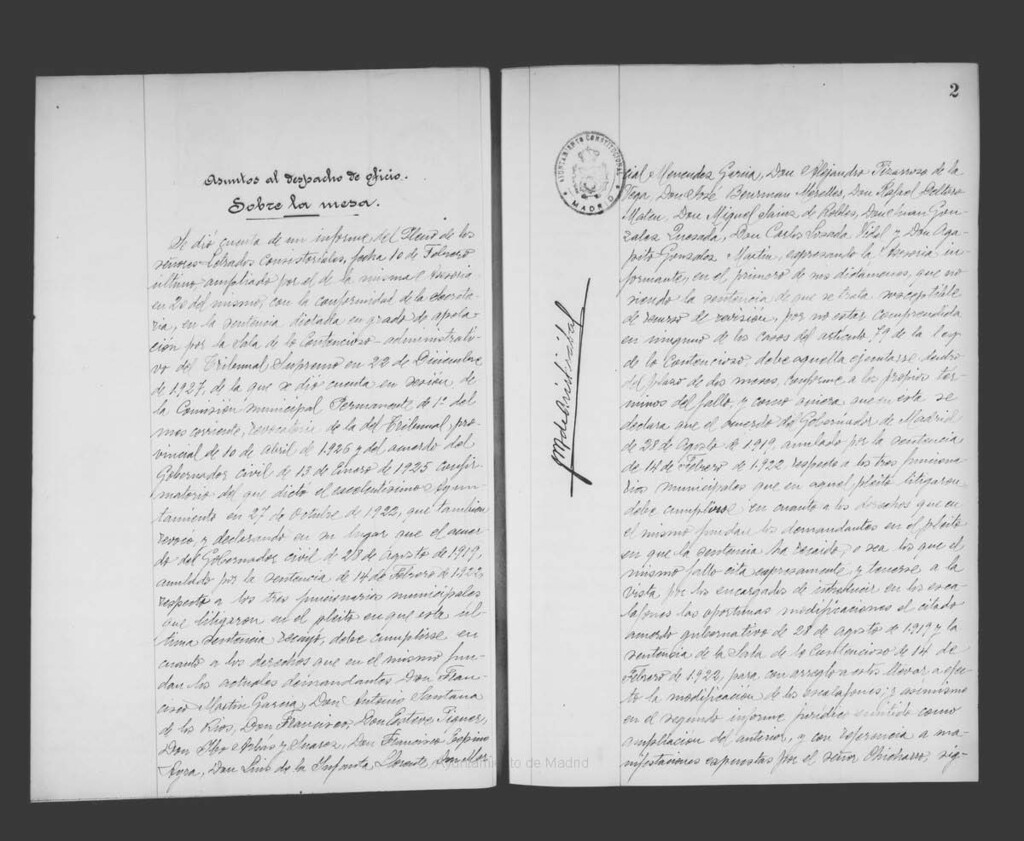 Asuntos al despacho de oficio.
Sobre la mesa.
Se dió cuenta de un informe del Pleno de los
señores Letrados Consistoriales, fecha 10 de Febrero
último ampliado por el de la misma Asesoria
en 28 del mismo, con la conformidad de la Secreta-
ria, en la sentencia dictada en grado de apela-
ción por la Sala de lo Contencioso administrati-
vo del Tribunal Supremo en 22 de Diciembre
de 1927, de la que se dió cuenta en sesión de
la Comisión municipal Permanente de 1º del
mes corriente, revocatoria de la del Tribunal pro-
vincial de 10 de abril de 1926 y del acuerdo del
Gobernador civil de 13 de Enero de 1925 confir-
matorio del que dictó el excelentísimo Ayun-
tamiento en 27 de Octubre de 1922, que tambien
revoca, y declarando en su lugar que el acuer-
do del Gobernador civil de 28 de Agosto de 1919,
anulado por la sentencia de 14 de Febrero de 1922
respecto a los tres funcionarios municipales
que litigaron en el pleito en que esta úl-
tima sentencia recayó, debe cumplirse en
cuanto a los derechos que en el mismo fun-
dan los actuales demandantes Don Fran-
cisco Martin Garcia, Don Antonio Santana
de los Rios, Don Francisco, Don Esteve
Don y Suarez, Don Francisco Espino
Ayra, Don Luis de la Infanta, Don
Ayuntamiento de Madrid
2
AYUNTAMIENTO CONSTITUCIONAL
MADRID
Menendez Garcia, Don Alejandro Pizarroso de la
Vega, Don José Don Rafael
Mateu, Don Miguel Sainz de Robles, Don Juan Gon-
zalez Quesada, Don Carlos Losada Vidal y Don Aga-
pito Gonzalez Martin, expresando la Asesoria in-
formante, en el primero de sus dictamenes, que no
siendo la sentencia de que se trata, susceptible
de recurso de revisión, por no estar comprendida
en ninguno de los casos del articulo 79 de la ley
de lo Contencioso, debe aquella ejecutarse dentro
del plazo de dos meses, conforme a los propios tér-
minos del fallo, y como quiera que en este se
declara que el acuerdo del Gobernador de Madrid
de 28 de Agosto de 1919, anulado por la sentencia
de 14 de Febrero de 1922 respecto a los tres funciona-
rios municipales que en aquel pleito litigaron
debe cumplirse en cuanto a los derechos que en
el mismo fundan los demandantes en el pleito
en que la sentencia ha recaido, o sea los que el
mismo fallo cita expresamente, y tenerse a la
vista por los encargados de introducir en los esca-
lafones las oportunas modificaciones el citado
acuerdo gubernativo de 28 de agosto de 1919 y la
sentencia de la Sala de lo Contencioso de 14 de
Febrero de 1922, para con arreglo a estos llevar a efec-
to la modificación de los escalafones; y asimismo
en el segundo informe juridico emitido como
ampliación del anterior, y con referencia a ma-
nifestaciones expuestas por el señor Chicharro, sig-